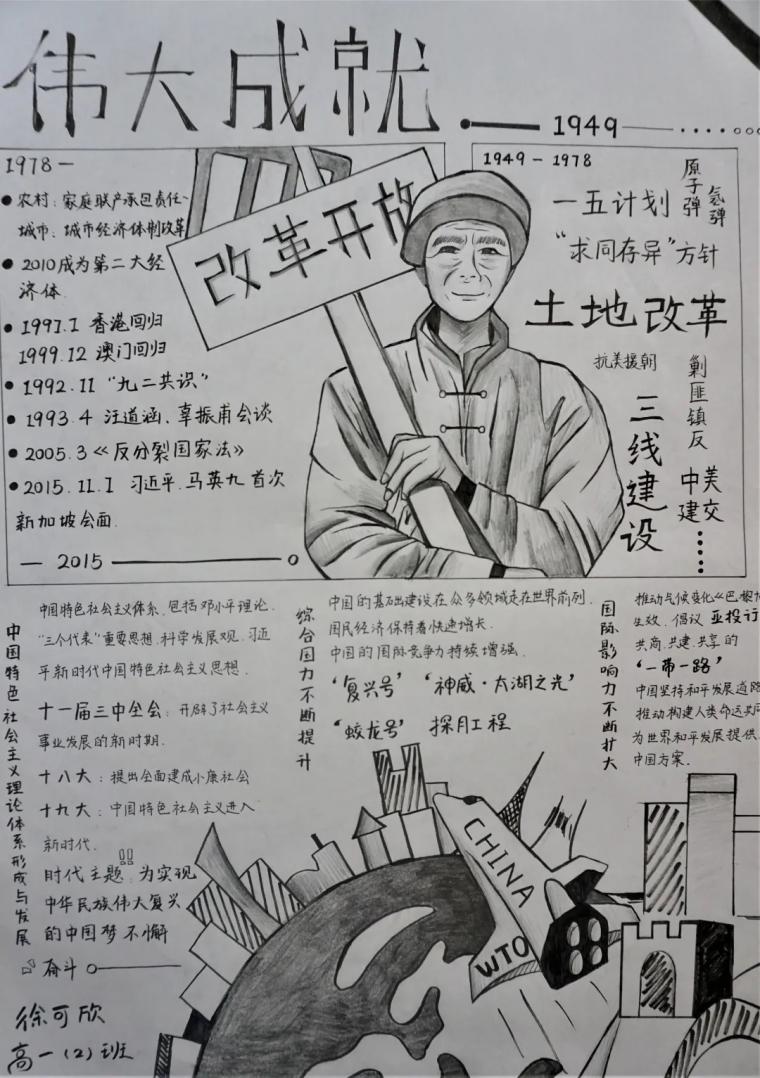 伟大成就
1949
1978-
农村：家庭联产承包责任
城市、城市经济体制改革
2010成为第二大经
济体.
1997.7 香港回归
1999.12 澳门回归
1992.11 "九二共识"
1993.4 汪道涵、辜振甫会谈
2005.3《反分裂国家法》
2015.11.7 习近平.马英九首次
新加坡会面.
— 2015
改革开放
1949-1978
原子弹
氢弹
一五计划
"求同存异"方针
土地改革
抗美援朝
剿匪镇反
三线建设
中美
建交
中国特色社会主义理论体系形成与发展
中国特色社会主义体系.包括邓小平理论.
"三个代表"重要思想.科学发展观.习近
平新时代中国特色社会主义思想.
十一届三中全会：开辟了社会主义
事业发展的新时期.
十八大：提出全面建成小康社会
十九大：中国特色社会主义进入
新时代.
时代主题!! 为实现
中华民族伟大复兴
的中国梦不懈
奋斗
徐可欣
高一(2)班
综合国力不断提升
中国的基础建设在众多领域走在世界前列.
国民经济保持着快速增长.
中国的国际竞争力持续增强.
'复兴号' '神威·太湖之光'
'蛟龙号' 探月工程
国际影响力不断扩大
推动气候变化《巴黎
生效.倡议 亚投行
共商.共建.共享的
'一带一路'
中国坚持和平发展道路
推动构建人类命运共同
为世界和平发展提供.
中国方案.
CHINA
WTO